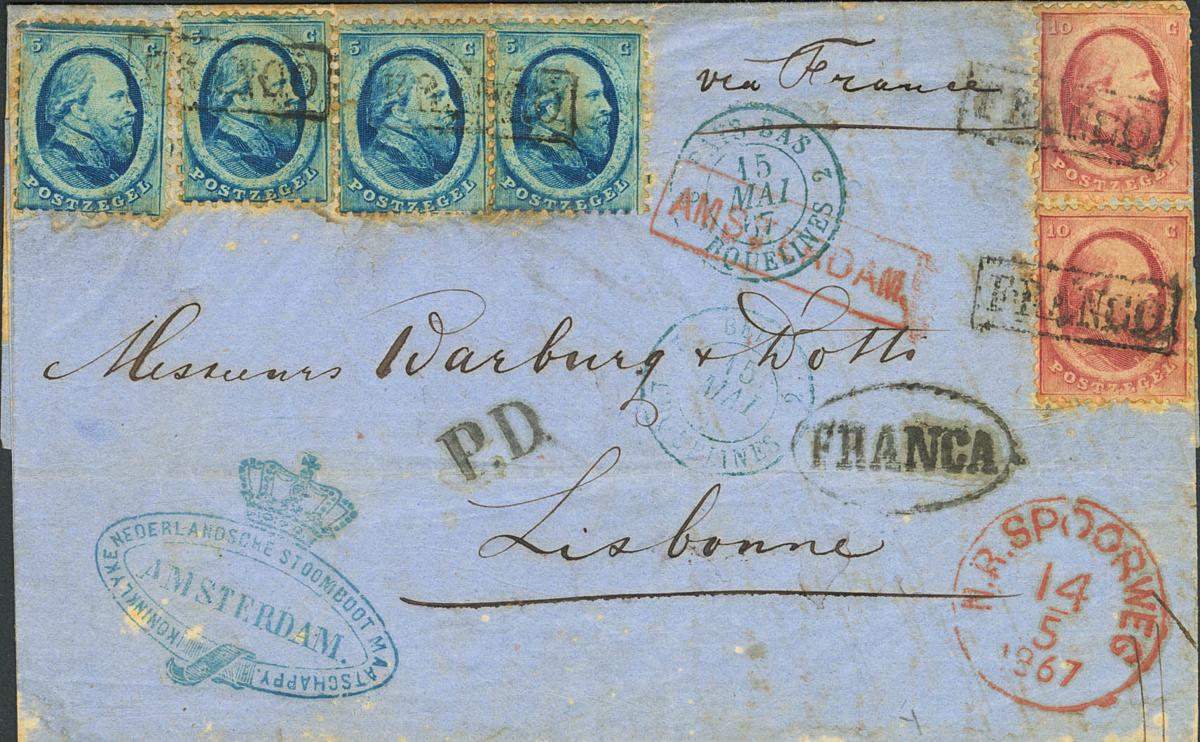 5 C
POSTZEGEL
FRANCO
5 C
POSTZEGEL
5 C
POSTZEGEL
FRANCO
5 C
POSTZEGEL
via France
10 C
FRANCO
POSTZEGEL
10 C
FRANCO
POSTZEGEL
PAYS-BAS 2
15
MAI
67
AMSTERDAM
Messieurs Warburg & Dotti
15
MAI
2
P.D.
FRANCA
Lisbonne
KONINKLYKE NEDERLANDSCHE STOOMBOOT MAATSCHAPPY.
AMSTERDAM.
N.R.SPOORWEG
14
5
1867